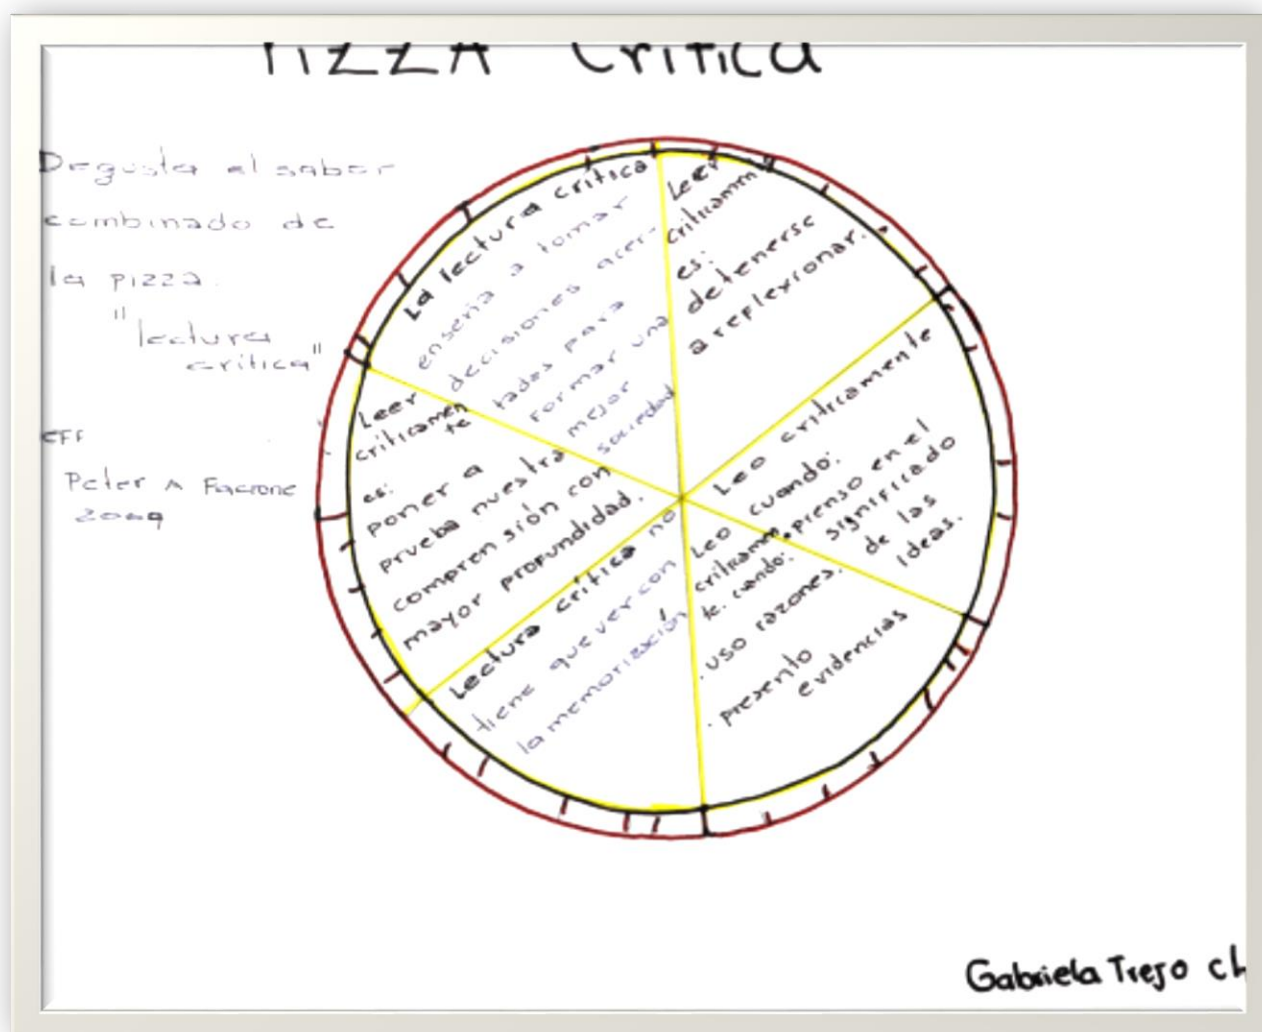 PIZZA Crítica
Degusta el sabor
combinado de
la pizza.
"lectura
crítica"
eff
Peter A Facione
2009
La lectura crítica
enseña a tomar
decisiones acer-
tadas para
formar una
mejor
sociedad
Leer
críticamn
es:
detenerse
a reflexionar.
Leo críticamente
cuando:
.pienso en el
significado
de las
ideas.
Leo
críticamn
te. cuando:
. uso razones.
. presento
evidencias
Lectura crítica no
tiene que ver con
la memorización
Leer
críticamen
te
es:
poner a
prueba nuestra
compren sión con
mayor profundidad.
Gabriela Trejo ch